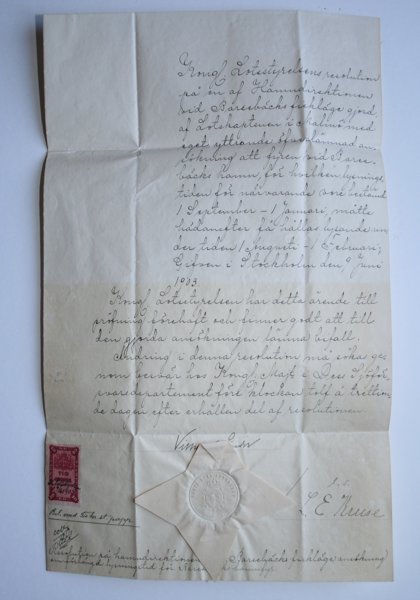 Kongl. Lotsstyrelsens resolution
på en af Hamndirektionen
vid Barsebäcks fiskläge gjord,
af Lotskaptenen i Malmö med
eget yttrande öfverlämnad an-
sökning att fyren vid Barse-
bäcks hamn, för hvilken lysnings-
tiden för närvarande vore bestämd
1 September - 1 Januari, måtte
hädanefter få hållas lysande un-
der tiden 1 Augusti - 1 Februari;
Gifven i Stockholm den 9 Juni
1903.
Kongl. Lotsstyrelsen har detta ärende till
pröfning förehaft och finner godt att till
den gjorda ansökningen lämna bifall.
Ändring i denna resolution må sökas ge-
nom besvär hos Kongl. Maj:t i Dess Sjöför-
svarsdepartement före klockan tolf å trettion-
de dagen efter erhållen del af resolutionen.
TIO
L. E. Kruse
Resolution på hamndirektionens Barsebäcks fiskläge ansökning
om förlängd lysningstid för